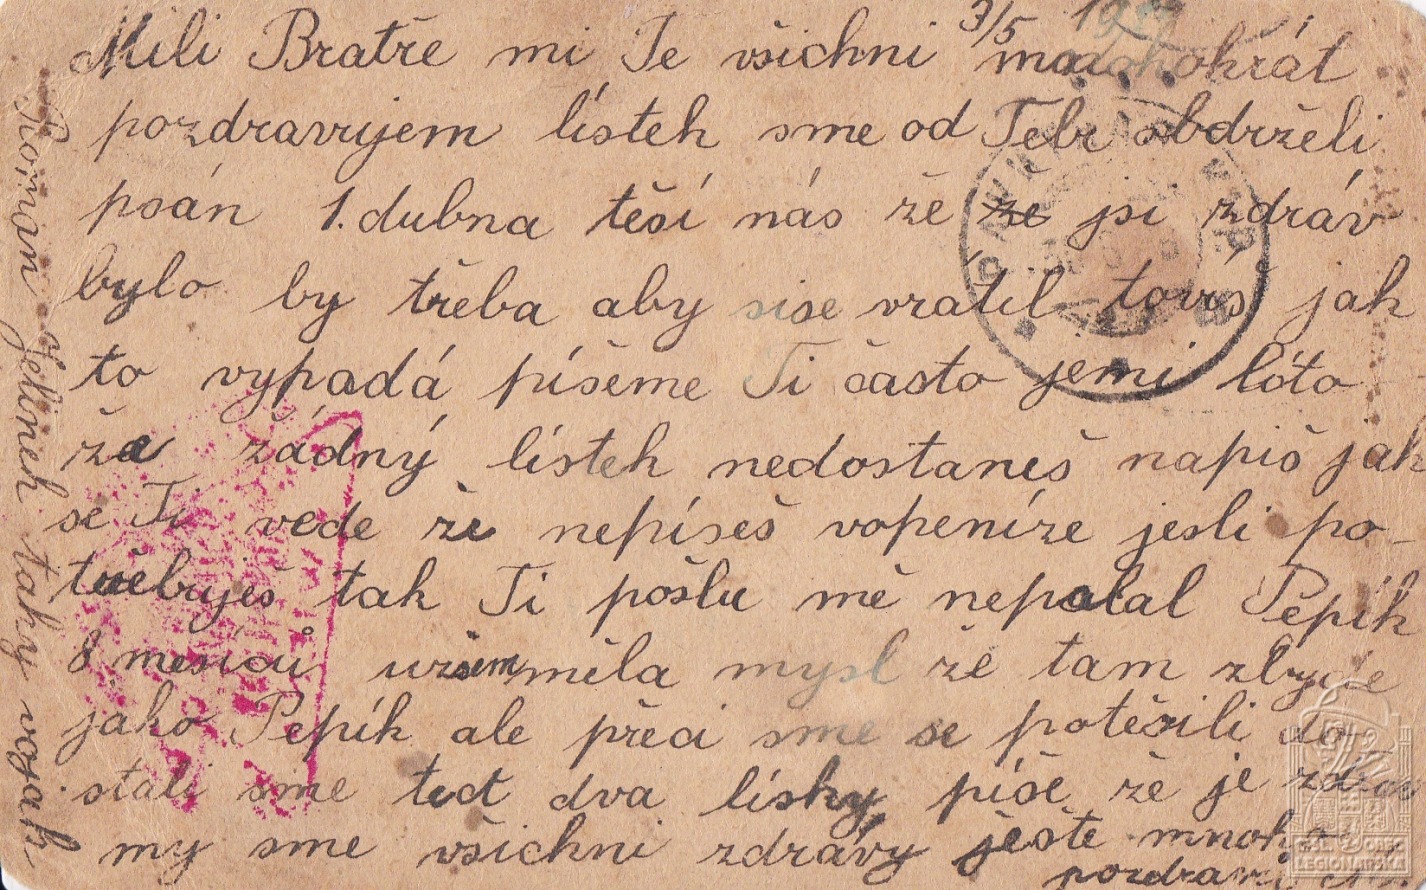 3/5 19
Mili Bratře mi Te všichni mnohokrát
pozdravujem lístek sme od Tebe obdrželi
psán 1. dubna těší nás že že jsi zdráv
bylo by třeba aby sise vrátil tovis jak
to vypadá píšeme Ti často jemi lóto
že žádný lístek nedostaneš napiš jak
se Ti vede že nepíseš vopeníze jesli po-
třebuješ tak Ti pošlu mě nepsal Pepík
8 mesicu užsem měla mysl že tam zbyde
jako Pepík ale přeci sme se potěšili do
stali sme teď dva lísky píše že je zdra
my sme všichni zdrávy ještě mnoho
pozdravu
Roman Jelínek taky voják
ČSL. OBEC
LEGIONÁŘSKÁ